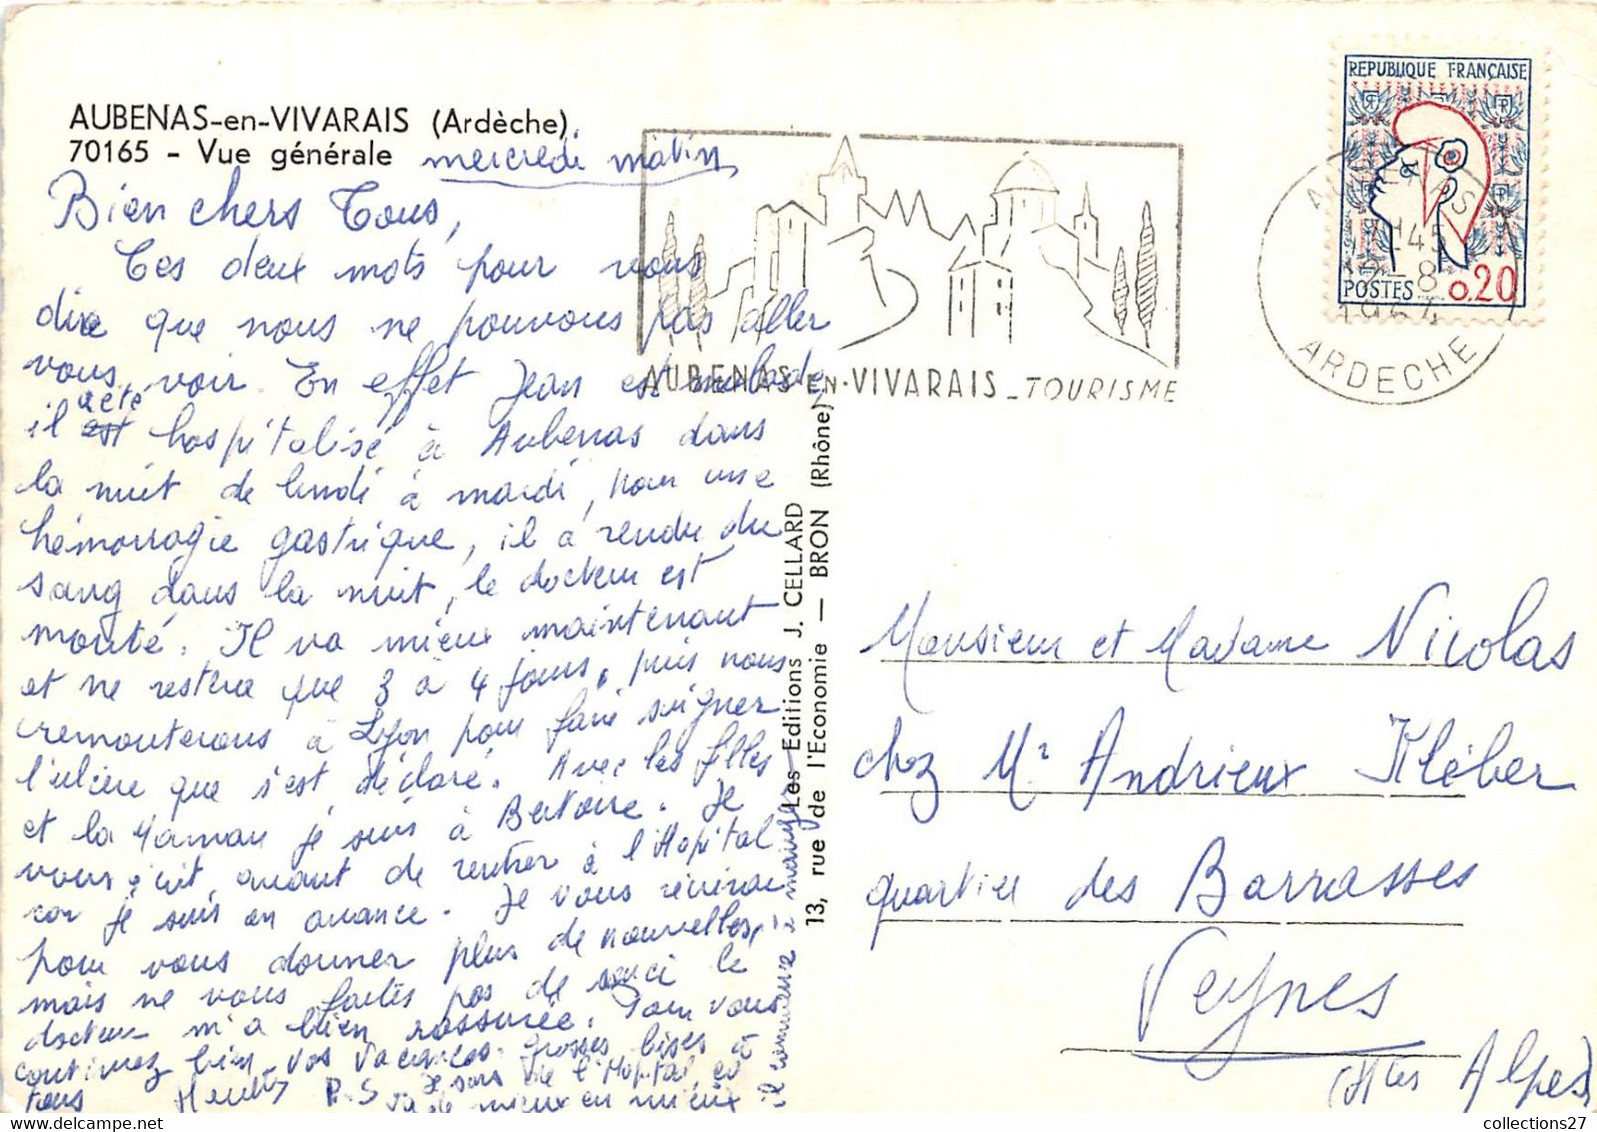 AUBENAS-en-VIVARAIS (Ardèche)
70165 - Vue générale
mercredi matin
Bien chers Tous,
Ces deux mots pour vous
dire que nous ne pouvons pas aller
vous voir. En effet Jean est malade,
a été
il est hospitalisé à Aubenas dans
la nuit de lundi à mardi, pour une
hémorragie gastrique, il a rendu du
sang dans la nuit, le docteur est
monté. Il va mieux maintenant
et ne restera que 3 à 4 jours, puis nous
remonterons à Lyon pour faire soigner
l'ulcère que s'est déclaré. Avec les filles
et la Maman je suis à . Je
vous écrit, avant de rentrer à l'Hopital
car je suis en avance. Je vous récrirai
pour vous donner plus de nouvelles,
mais ne vous faites pas de souci le
docteur m'a bien rassurée. Pour vous
continuez bien vos vacances. grosses bises à
tous
P.S Je sors de l'Hopital, ça
va de mieux en mieux
il commence à manger
Les Editions J. CELLARD
13, rue de l'Economie — BRON (Rhône)
AUBENAS-EN-VIVARAIS - TOURISME
REPUBLIQUE FRANÇAISE
POSTES 0,20
AUBENAS
45
-8
ARDECHE
Monsieur et Madame Nicolas
chez Mr Andrieux Kléber
quartier des Barrasses
Veynes
(Htes Alpes)
collections27